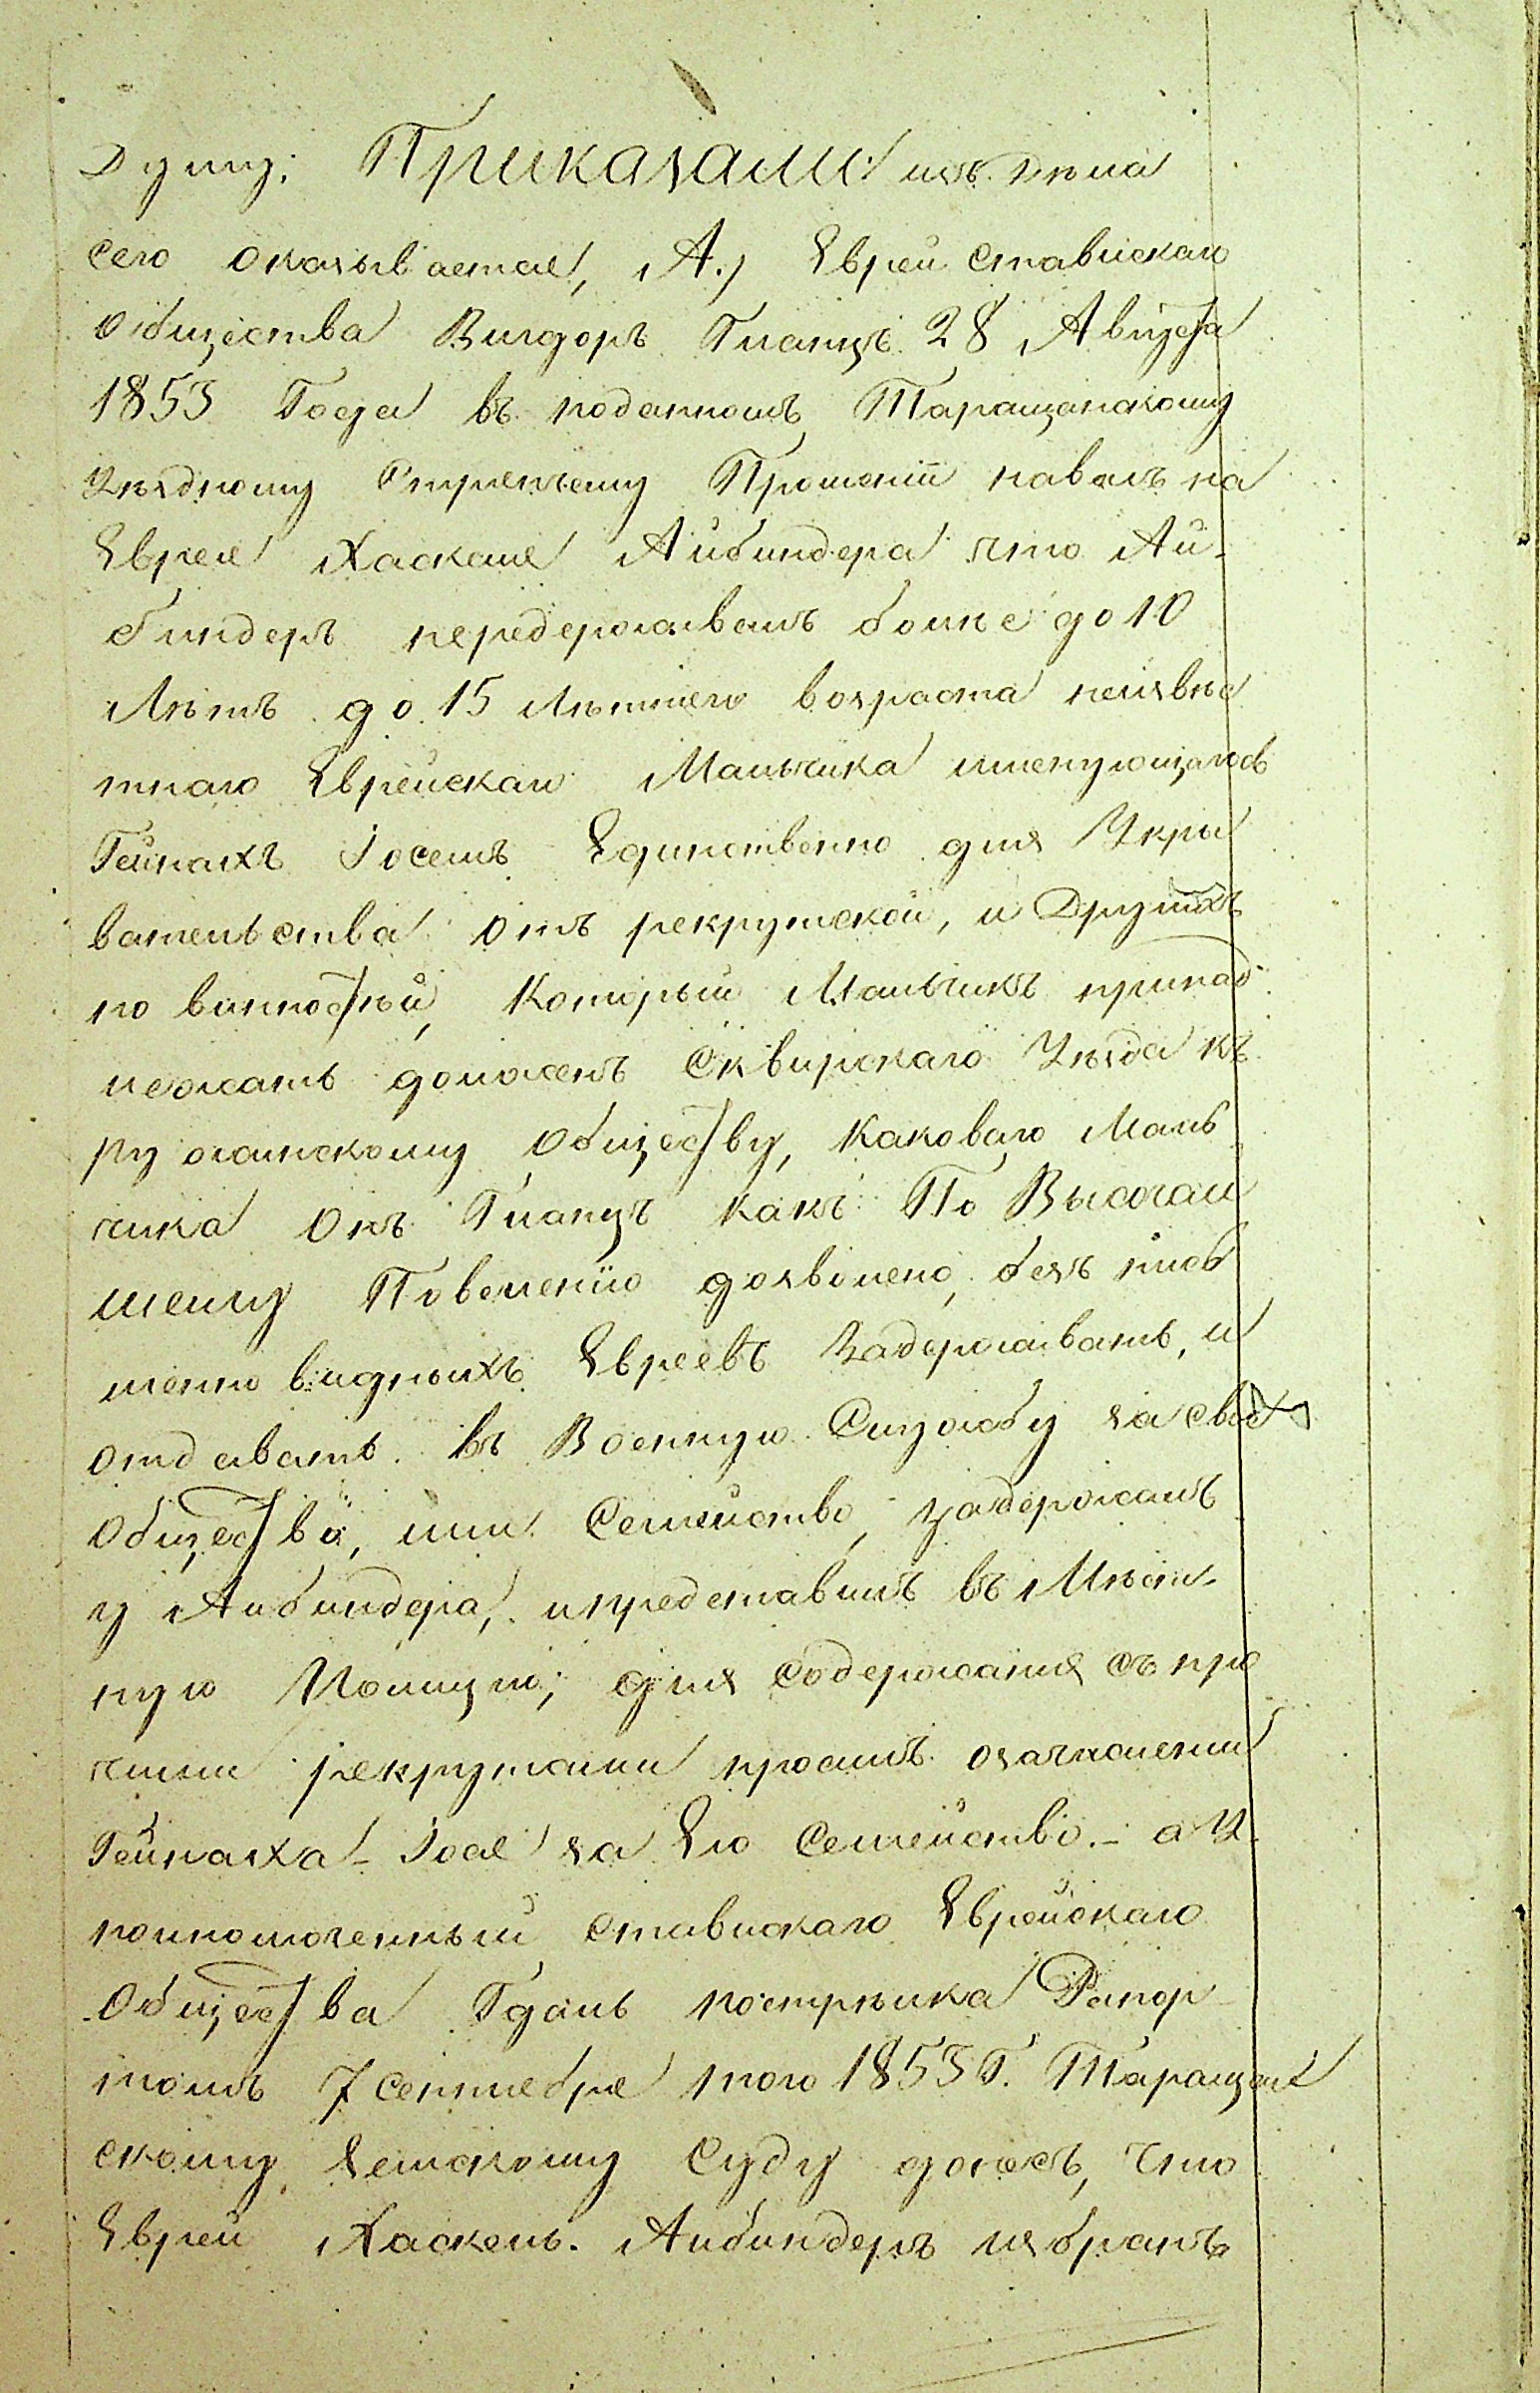 Думу; Приказали: изъ Дѣла
сего оказывается, А.) Еврей Ставискаго
Общества Вигдоръ Глатцъ 28 Августа
1853 Года въ поданномъ Таращанскому
Уѣздному Стряпчему Прошеніи навелъ на
Еврея Хаскеля Айбиндера что Ай-
биндеръ передерживалъ болѣе до 10
Лѣтъ до 15 Лѣтнего возраста неизвѣс
тнаго Еврейскаго Мальчика именующагось
Гейнахъ Іосемъ Единственно для Укры
вательства Отъ рекрутской, и Другихъ
повинностѣй, Который Мальчикъ принад
лежать долженъ Сквирскаго Уѣзда къ
Ружинскому Обществу, Каковаго Маль
чика Онъ Глатцъ какъ По Высочай
шему Повеленію дозволено, безъ пись
менно видныхъ Евреевъ Задерживать, и
отдавать въ Военную Службу за свое
Общество, или Семейство, задержалъ
у Айбиндера, и представилъ въ Мѣст-
ную Полицію; для Содержанія съ про
чими рекрутами просилъ о зачисленіи
Гейнаха-Іося за Его Семейство. - а У
полномоченный Ставискаго Еврейскаго
Общества Гдаль пострѣлка Рапор-
томъ 7 Сентября того 1853 Г. Таращан
скому Земскому Суду донесъ, что
Еврей Хаскель Айбиндеръ избранъ